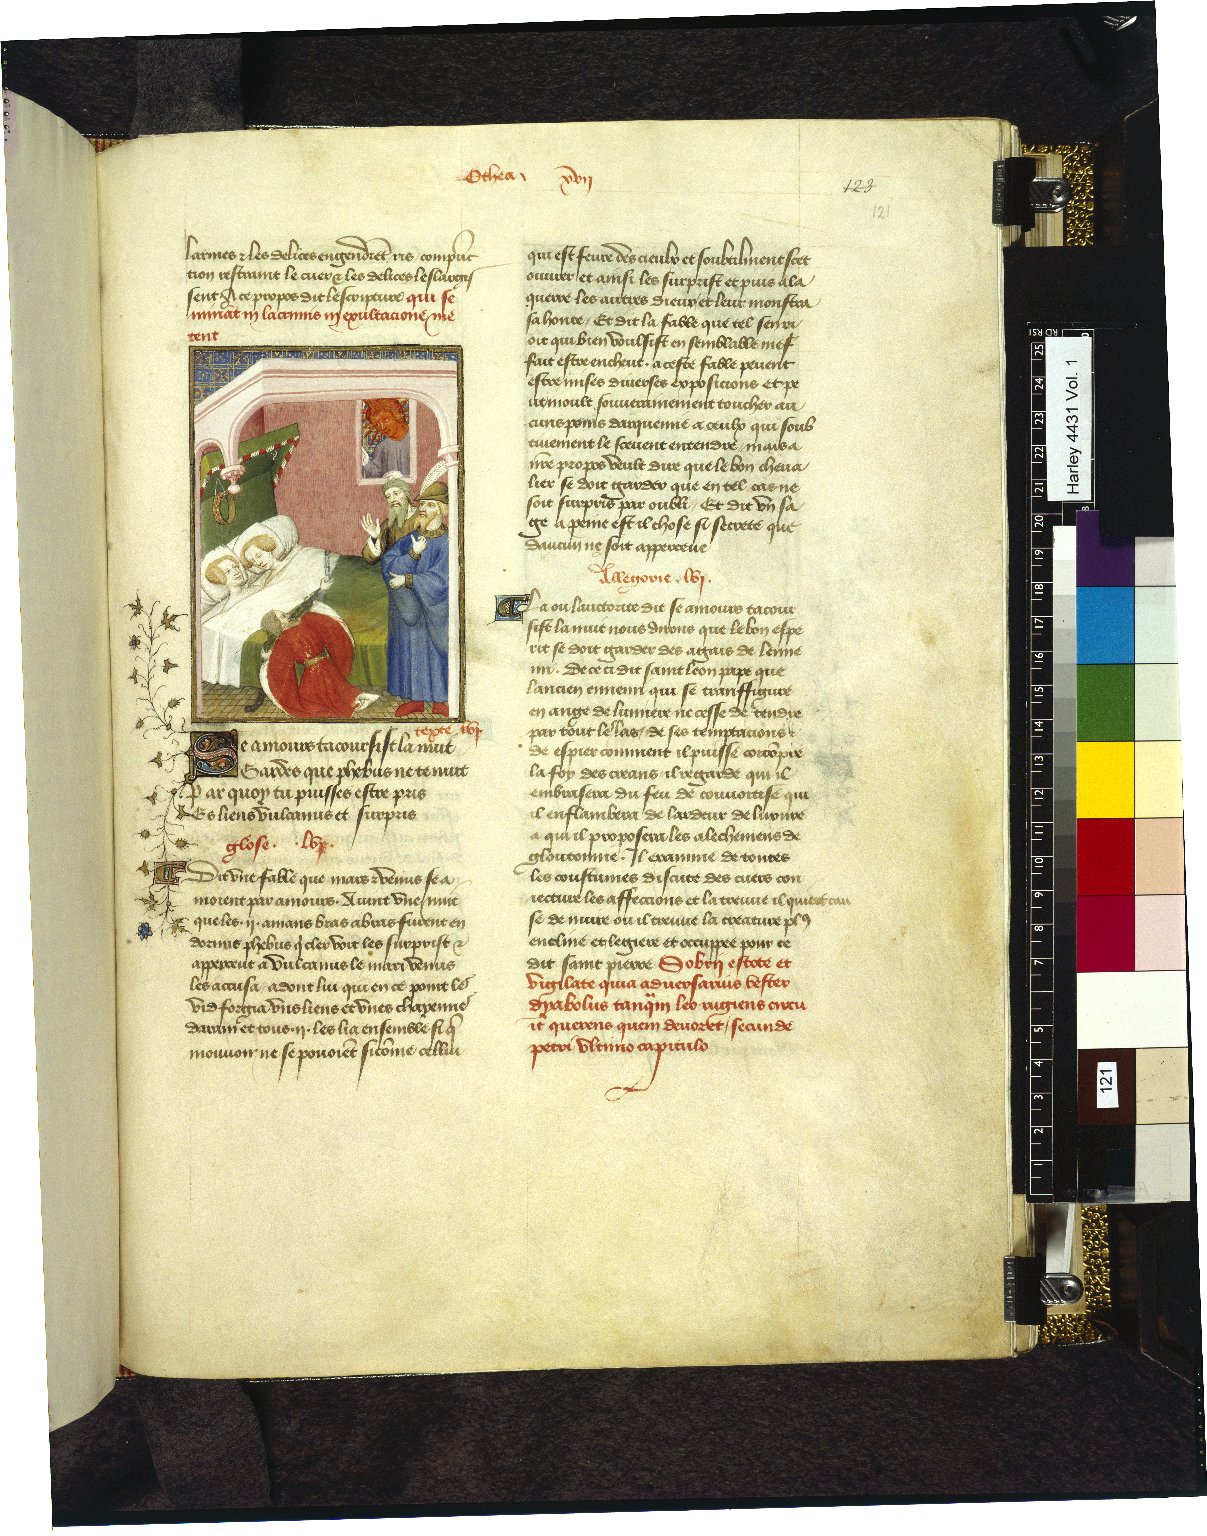 Othea xvii
123
121
larmes et les delices engendret ris / compunc
tion restraint le cuer et les delices leslargis
sent A ce propos dit lescripture qui se
minat in lacrimis in exultacione me
tent
texte lvj
Se amours tacoursist la nuit
Gardes que phebus ne te nuit
Par quoy tu puisses estre pris
Es liens vulcanus et surpris
glose . lvj.
Dit vne fable que mars et venus se a
moient par amours . Auint vne nuit
que les .ij. amans bras a bras furent en
dormis phebus q cler voit les surprist et
apperceut a vulcanus le mari venus
les accusa / adont lui qui en ce point les
vid forgia vns liens et vnes chayennes
darain et tous .ij. les lia ensemble si q
mouuoir ne se pouoiet si come cellui
qui est feure des cieulx et soubtilment scet
ouurer et ainsi les surprist et puis ala
querre les autres dieux et leur monstra
sa honte / Et dit la fable que tel sen ri
oit qui bien voulsist en semblable mef
fait estre encheut . a ceste fable peuent
estre mises diuerses exposicions et pe
ut moult souuerainement toucher au
cuns poins darquemie a ceulx qui soub
tiuement le sceuent entendre / mais a
nre propos veult dire que le bon cheua
lier se doit garder que en tel cas ne
soit surpris par oubli / Et dit vn sa
ge a peine est il chose si secrete que
daucun ne soit apperceue
Allegorie . lvj .
La ou lauctorite dit se amours tacour
sist la nuit nous dirons que le bon espe
rit se doit garder des agais de lenne
mi . De ce ci dit saint leon pape que
lancien ennemi qui se transfigure
en ange de lumiere ne cesse de tendre
par tout les las / de ses temptacions et
de espier comment il puisse corropre
la foy des creans il regarde qui il
embrasera du feu de couuoitise qui
il enflambera de lardeur de luxure
a qui il proposera les alechemens de
gloutonnie . Il examine de toutes
les coustumes discute des cuers con
iecture les affeccions et la treuue il quiert cau
se de nuire ou il treuue la creature pl9
encline et legiere et occuppee pour ce
dit saint pierre Sobrij estote et
vigilate quia aduersarius vester
dyabolus tanquam leo rugiens circu
it querens quem deuoret / secunde
petri vltimo capitulo
Harley 4431 Vol. 1
121